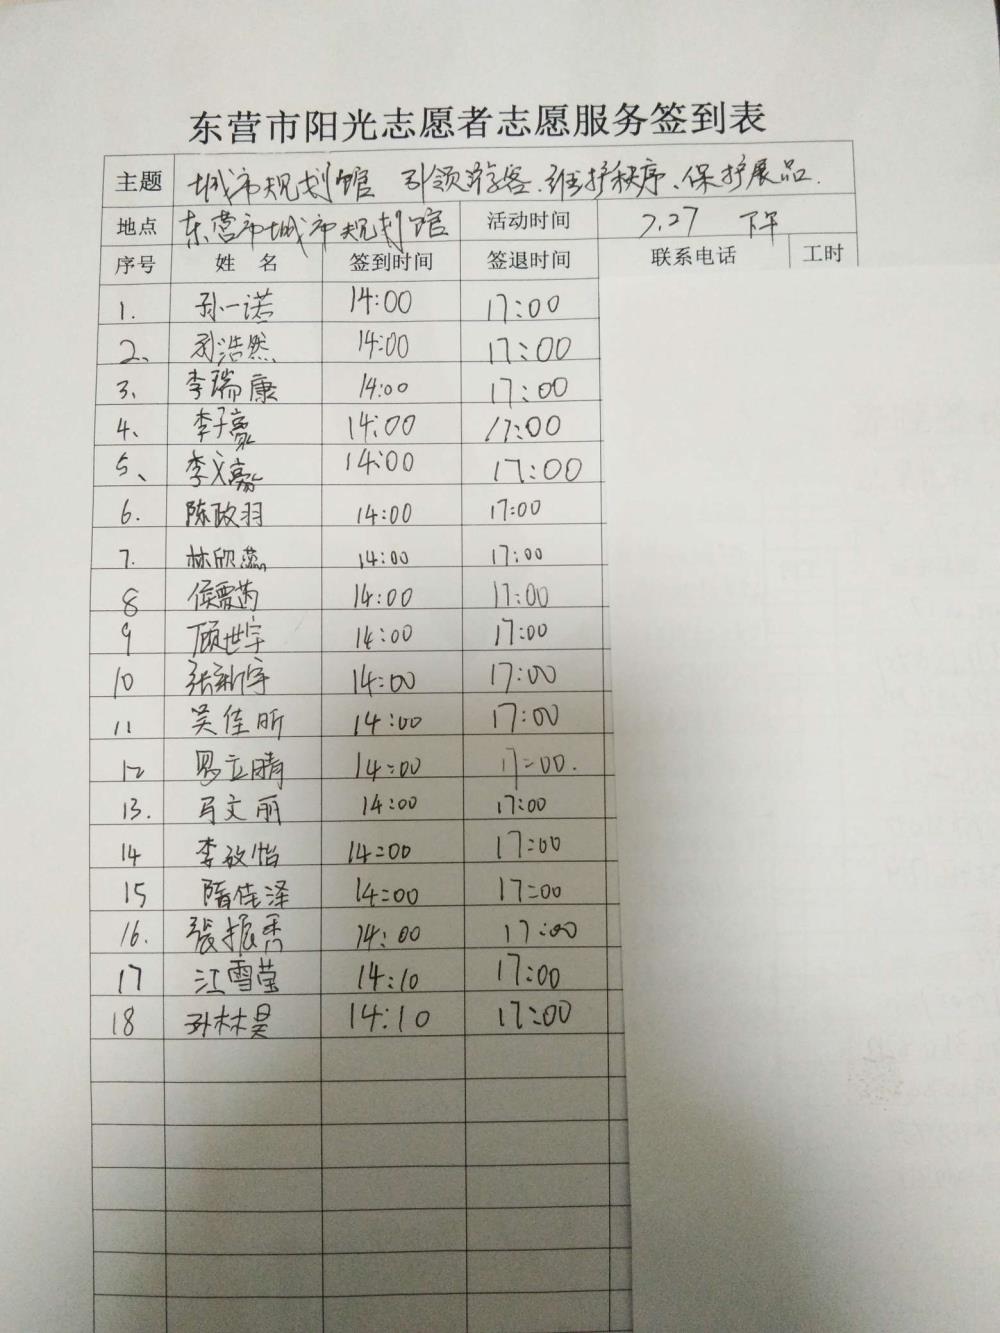 东营市阳光志愿者志愿服务签到表
主题 城市规划馆 引领游客、维护秩序、保护展品.
地点 东营市城市规划馆 活动时间 7.27 下午
序号 姓名 签到时间 签退时间 联系电话 工时
1. 孙一诺 14:00 17:00
2、 刘浩然 14:00 17:00
3、 李瑞康 14:00 17:00
4、 李子豪 14:00 17:00
5、 李文豪 14:00 17:00
6. 陈政羽 14:00 17:00
7. 林欣蕊 14:00 17:00
8 侯雯芮 14:00 17:00
9 顾世宇 14:00 17:00
10 张新宇 14:00 17:00
11 吴佳昕 14:00 17:00
12 立晴 14:00 17:00.
13. 马文丽 14:00 17:00
14 李政怡 14:00 17:00
15 隋佳泽 14:00 17:00
16. 張振 14:00 17:00
17 江雪莹 14:10 17:00
18 孙林昊 14:10 17:00